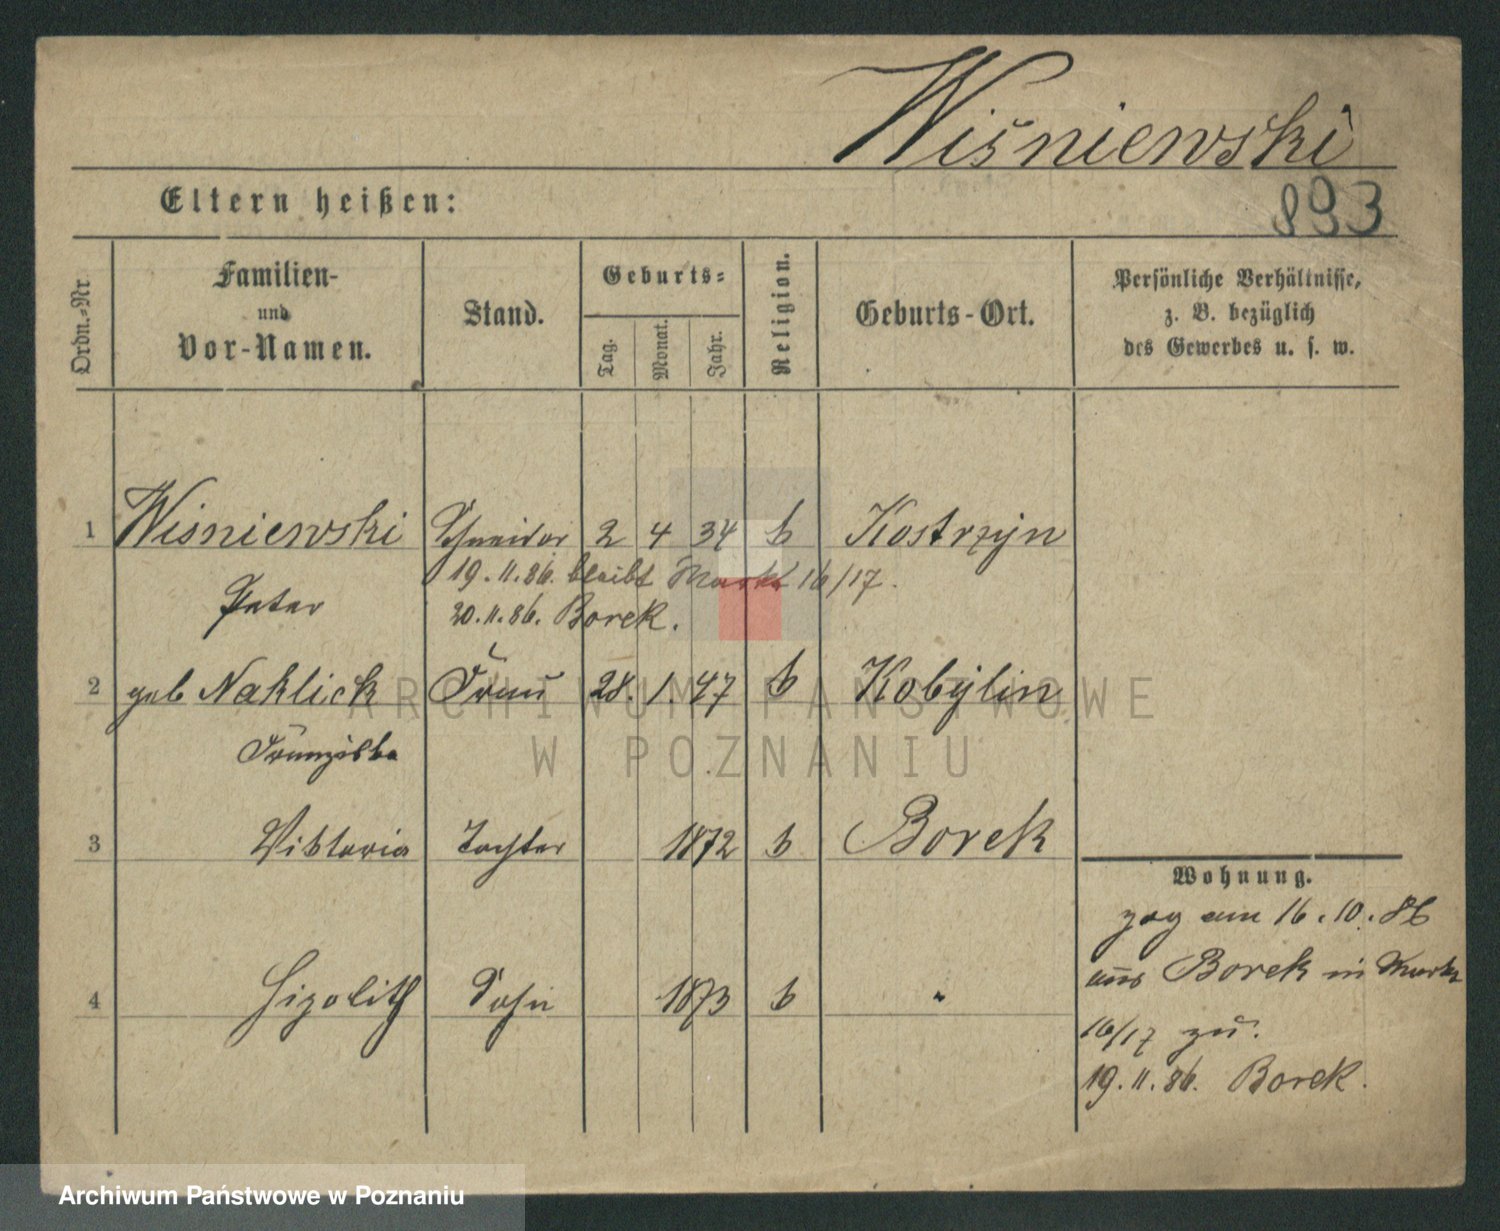 Wiśniewski
893
Eltern heißen:
Ordn.=Nr
Familien-
und
Vor-Namen.
Stand.
Geburts=
Tag.
Monat.
Jahr.
Religion.
Geburts-Ort.
Persönliche Verhältnisse,
z. B. bezüglich
des Gewerbes u. s. w.
1 Wiśniewski Schneider 2 4 34 Kostrzyn
19. 11. 86. bleibt Markt 16/17.
Peter
20. 11. 86. Borek.
2 geb Naklick Frau 28. 1. 47 Kobylin
Franziska
3 Viktoria Tochter 1872 Borek
Wohnung.
zog am 16. 10. 86
aus Borek in Markt
4 Hipolith Sohn 1873 "
16/17 zu.
19. 11. 86. Borek.
ARCHIWUM PAŃSTWOWE
W POZNANIU
Archiwum Państwowe w Poznaniu